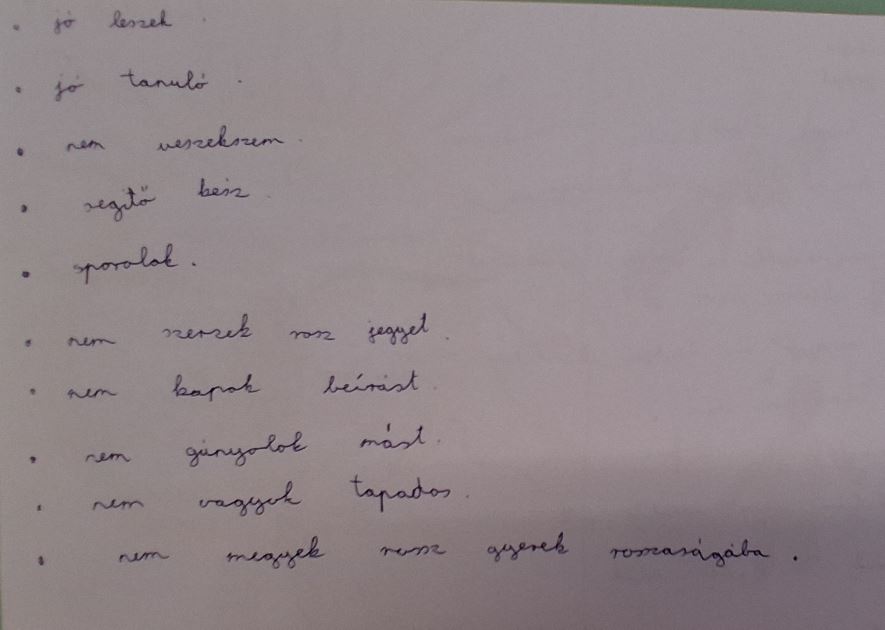 • jó leszek.
• jó tanuló.
• nem veszekszem.
• segitő kész.
• sporolok.
• nem szerzek rosz jegyet.
• nem kapok beírást.
• nem gúnyolok mást.
• nem vagyok tapados.
• nem megyek rossz gyerek roszaságába.